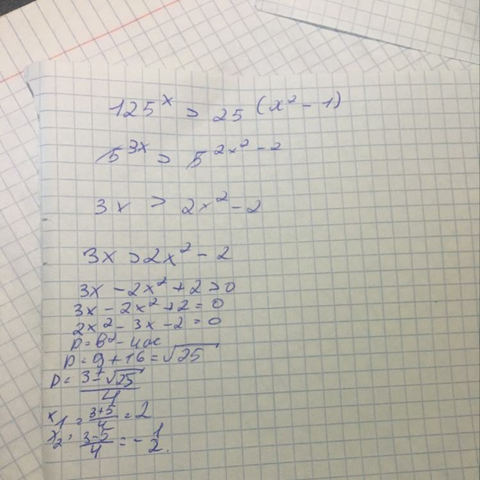 125^x > 25^(x² - 1)
5^3x > 5^2x² - 2
3x > 2x² - 2
3x > 2x² - 2
3x - 2x² + 2 > 0
3x - 2x² + 2 = 0
2x² - 3x - 2 = 0
D = b² - 4ac
D = 9 + 16 = √25
D = (3 ± √25)/4
x1 = (3+5)/4 = 2
x2 = (3-5)/4 = - 1/2.